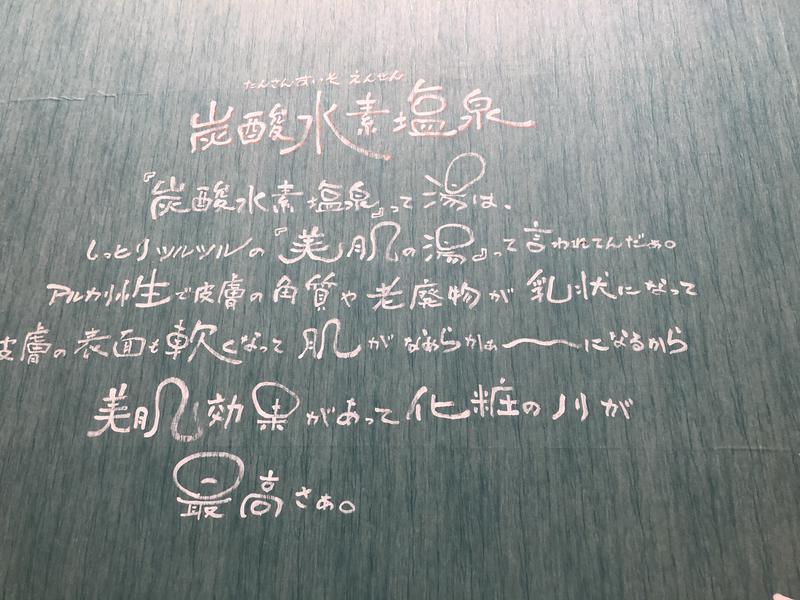 たんさんすいそ えんせん
炭酸水素塩泉
『炭酸水素塩泉』って湯は、
しっとりツルツルの『美肌の湯』って言われてんだぁ。
アルカリ性で皮膚の角質や老廃物が乳状になって
皮膚の表面も軟くなって肌がなめらかぁ〜になるから
美肌効果があって化粧のノリが
最高さぁ。